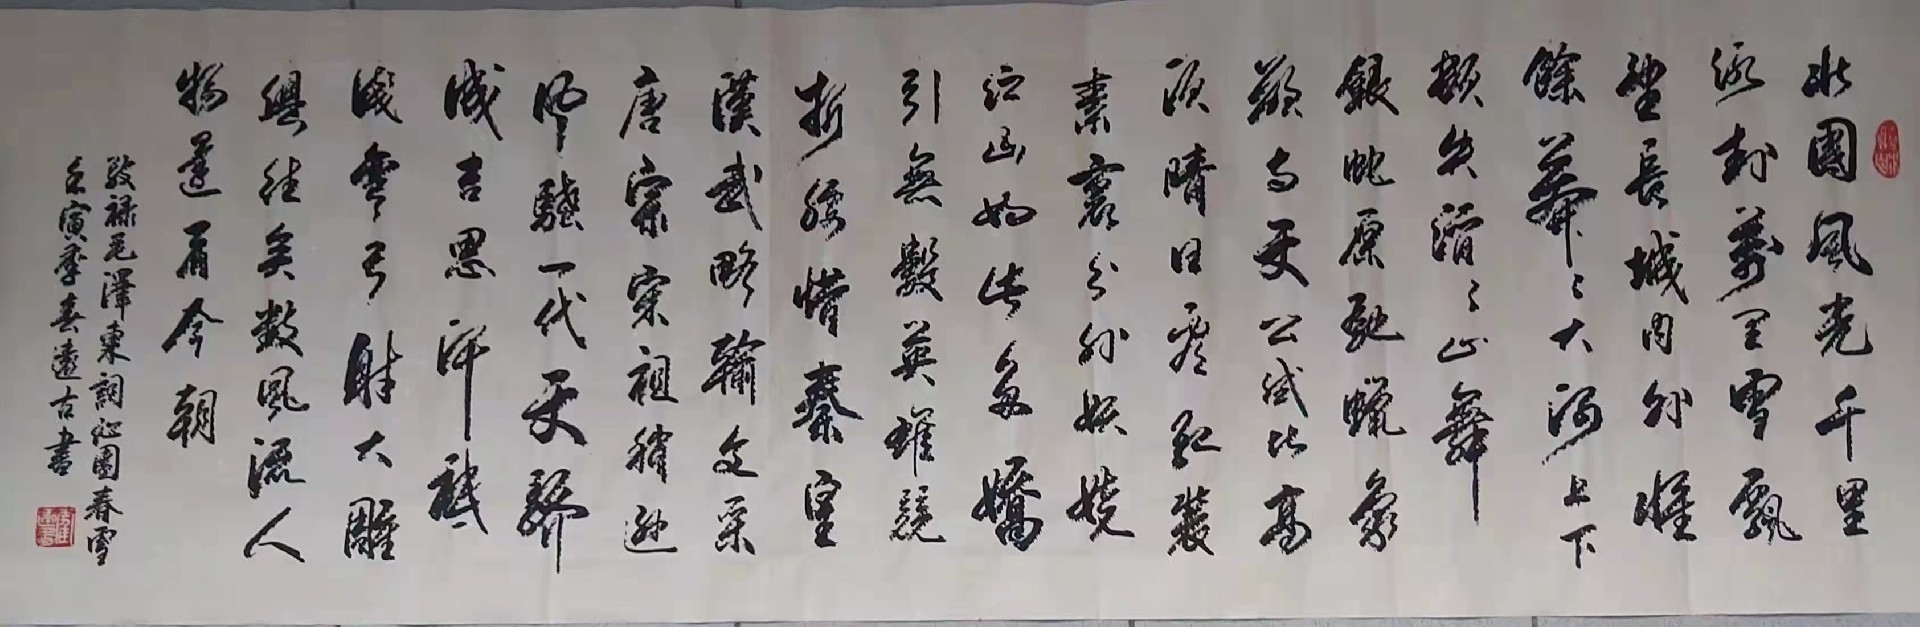 北國風光千里
冰封萬里雪飄
望長城内外惟
餘莽〻大河上下
頓失滔〻山舞
銀蛇原馳蠟象
欲与天公試比高
須晴日看紅裝
素裹分外妖嬈
江山如此多嬌
引無數英雄競
折腰惜秦皇
漢武略輸文采
唐宗宋祖稍遜
風騷一代天驕
成吉思汗祗
識弯弓射大雕
俱往矣數風流人
物還看今朝
敬禄毛澤東詞沁園春雪
壬寅季春遠古書